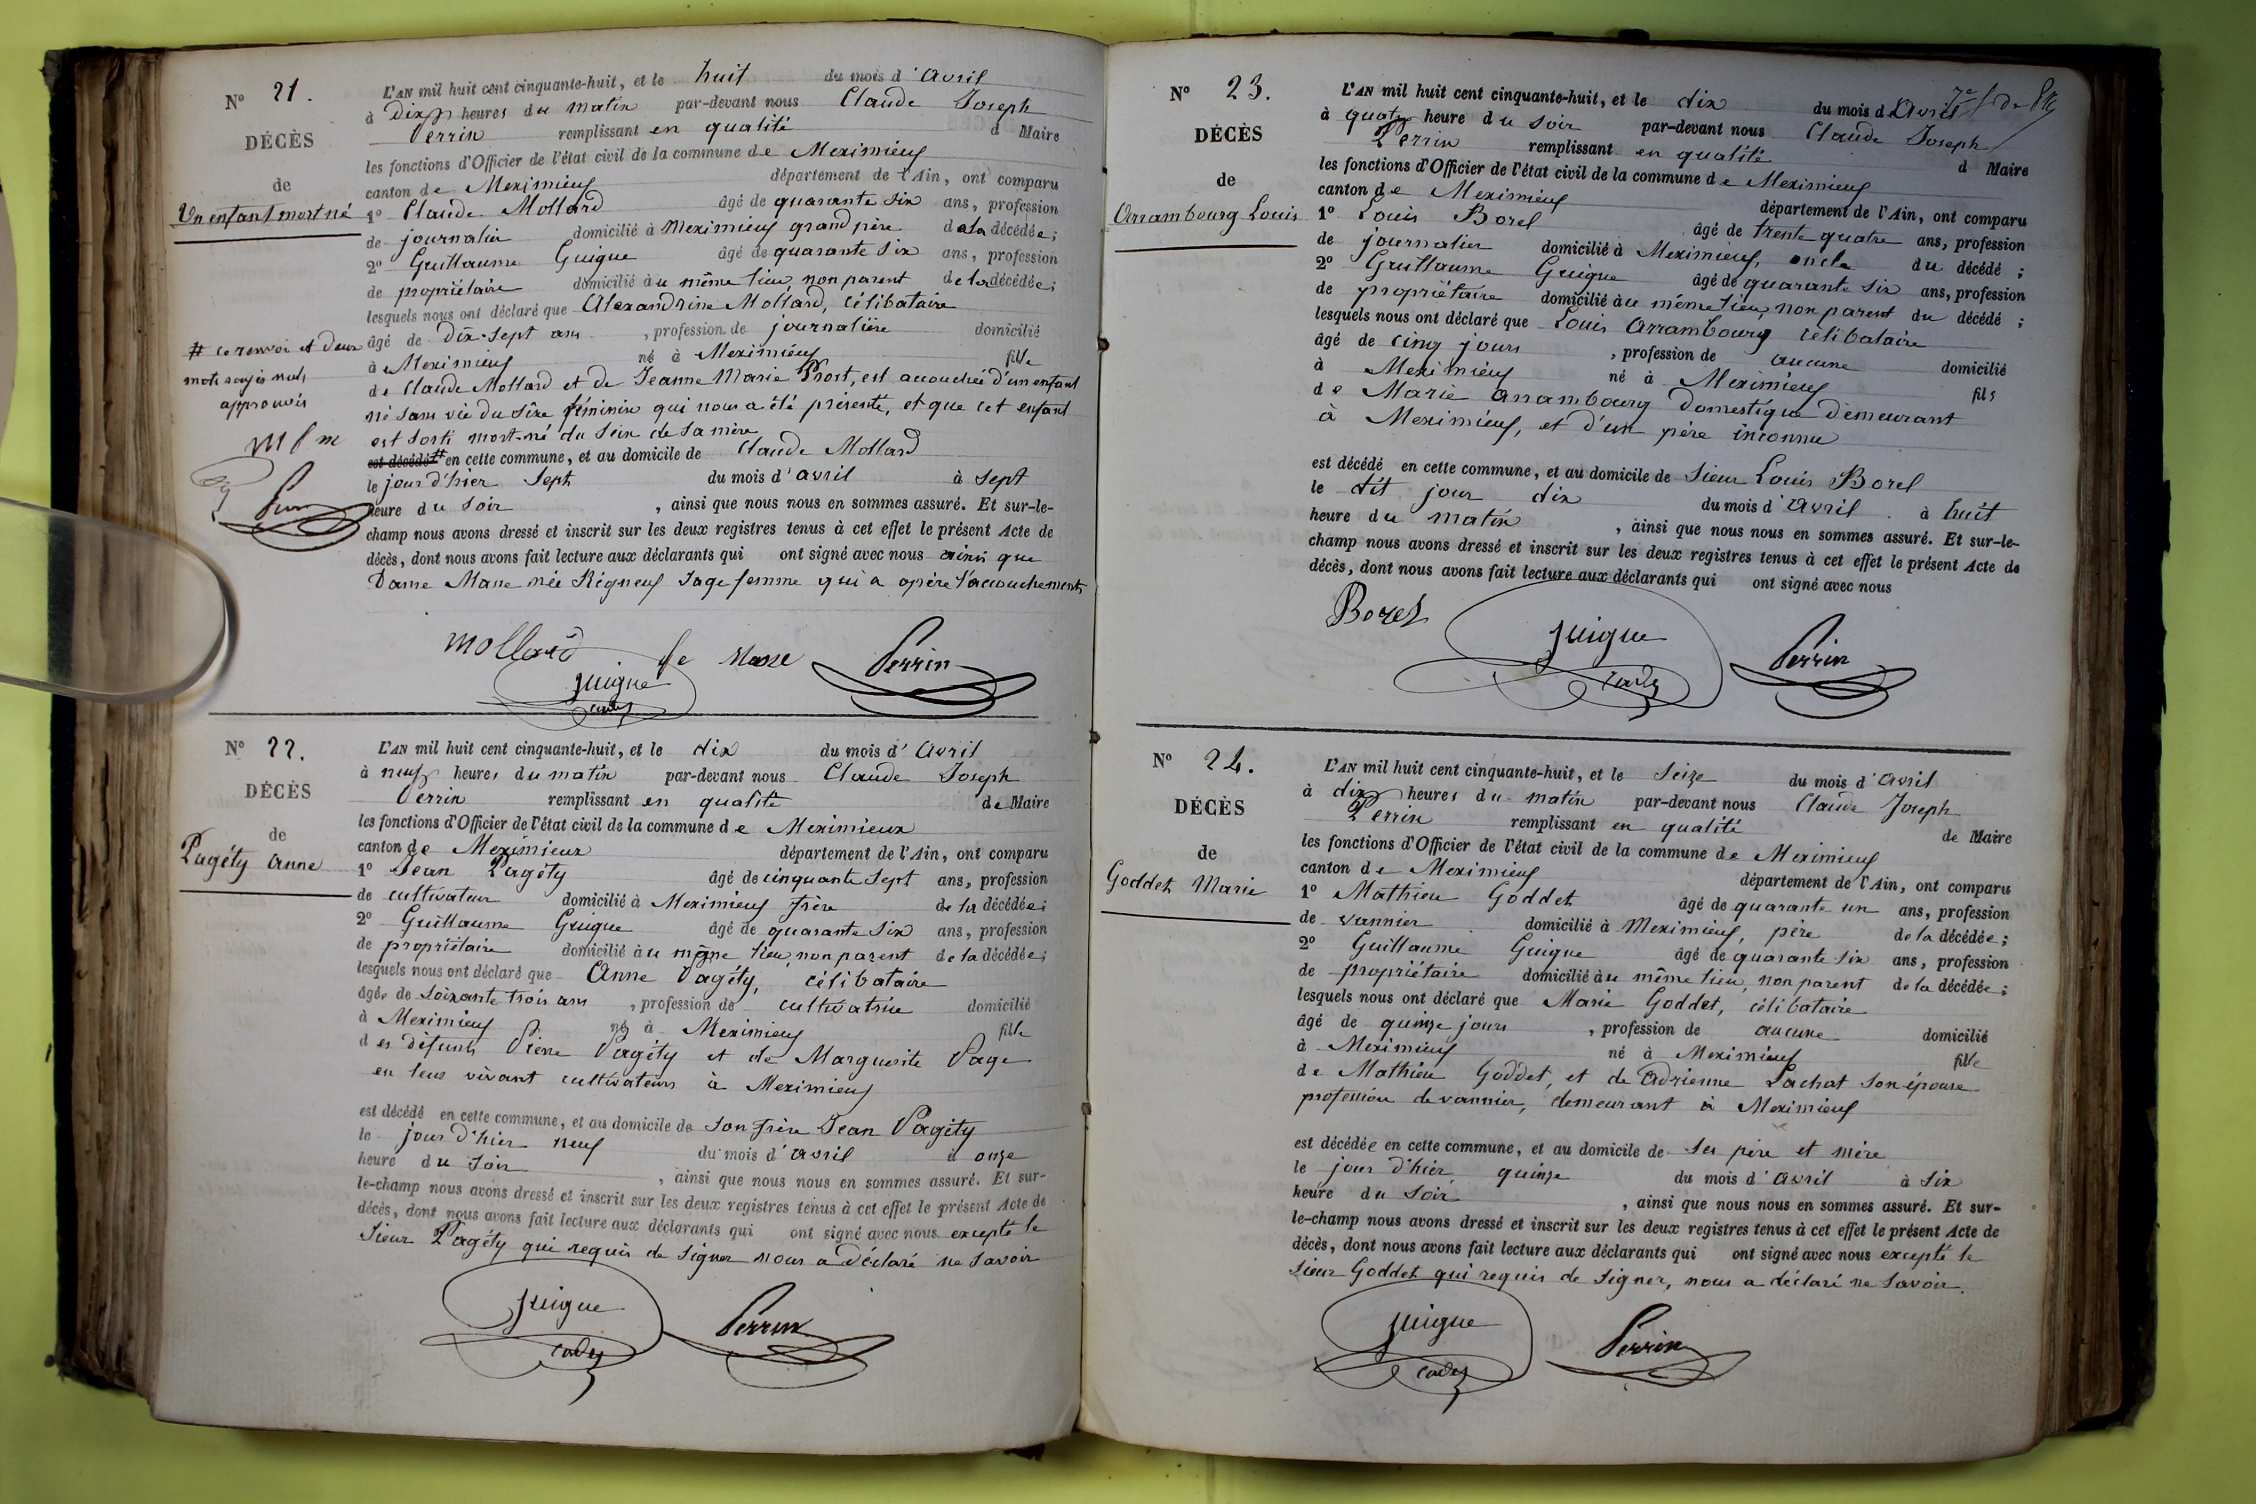 N° 21.
DÉCÈS
de
Un enfant mort né
L'AN mil huit cent cinquante-huit, et le huit du mois d'avril
à dix heures du matin par-devant nous Claude Joseph
Perrin remplissant en qualité d Maire
les fonctions d'Officier de l'état civil de la commune de Meximieux
canton de Meximieux département de l'Ain, ont comparu
1° Claude Mollard âgé de quarante six ans, profession
de journalier domicilié à Meximieux grand père de la décédée;
2° Guillaume Guigue âgé de quarante six ans, profession
de propriétaire domicilié au même lieu, non parent de la décédée;
lesquels nous ont déclaré que Alexandrine Mollard, célibataire
âgé de dix-sept ans, profession de journalière domicilié
à Meximieux né à Meximieux fille
de Claude Mollard et de Jeanne Marie Prost, est accouchée d'un enfant
né sans vie du sexe féminin qui nous a été présenté, et que cet enfant
# est sorti mort-né du sein de sa mère
est décédé # en cette commune, et au domicile de Claude Mollard
le jour d'hier sept du mois d'avril à sept
heure du soir, ainsi que nous nous en sommes assuré. Et sur-le-
champ nous avons dressé et inscrit sur les deux registres tenus à cet effet le présent Acte de
décès, dont nous avons fait lecture aux déclarants qui ont signé avec nous ainsi que
Dame Mane née Régneux sage femme qui a opéré l'accouchement
# ce renvoi et deux
mots rayés nuls
approuvés
Mollard fe Mane Perrin
Guigue
N° 22.
DÉCÈS
de
Pagéty Anne
L'AN mil huit cent cinquante-huit, et le dix du mois d'avril
à neuf heures du matin par-devant nous Claude Joseph
Perrin remplissant en qualité de Maire
les fonctions d'Officier de l'état civil de la commune de Meximieux
canton de Meximieux département de l'Ain, ont comparu
1° Jean Pagéty âgé de cinquante sept ans, profession
de cultivateur domicilié à Meximieux frère de la décédée;
2° Guillaume Guigue âgé de quarante six ans, profession
de propriétaire domicilié au même lieu, non parent de la décédée;
lesquels nous ont déclaré que Anne Pagéty, célibataire
âgée de soixante trois ans, profession de cultivatrice domicilié
à Meximieux né à Meximieux fille
des défunts Pierre Pagéty et de Marguerite Page
en leur vivant cultivateurs à Meximieux
est décédé en cette commune, et au domicile de son frère Jean Pagéty
le jour d'hier neuf du mois d'avril à onze
heure du soir, ainsi que nous nous en sommes assuré. Et sur-
le-champ nous avons dressé et inscrit sur les deux registres tenus à cet effet le présent Acte de
décès, dont nous avons fait lecture aux déclarants qui ont signé avec nous excepté le
sieur Pagéty qui requis de signer nous a déclaré ne savoir
Guigue Perrin
N° 23.
DÉCÈS
de
Arrambourg Louis
L'AN mil huit cent cinquante-huit, et le dix du mois d'Avril
à quatre heure du soir par-devant nous Claude Joseph
Perrin remplissant en qualité d Maire
les fonctions d'Officier de l'état civil de la commune de Meximieux
canton de Meximieux département de l'Ain, ont comparu
1° Louis Borel âgé de trente quatre ans, profession
de journalier domicilié à Meximieux, oncle du décédé;
2° Guillaume Guigue âgé de quarante six ans, profession
de propriétaire domicilié au même lieu, non parent du décédé;
lesquels nous ont déclaré que Louis Arrambourg célibataire
âgé de cinq jours, profession de aucune domicilié
à Meximieux né à Meximieux fils
de Marie Arrambourg domestique demeurant
à Meximieux, et d'un père inconnu
est décédé en cette commune, et au domicile de sieur Louis Borel
le dit jour dix du mois d'avril à huit
heure du matin, ainsi que nous nous en sommes assuré. Et sur-le-
champ nous avons dressé et inscrit sur les deux registres tenus à cet effet le présent Acte de
décès, dont nous avons fait lecture aux déclarants qui ont signé avec nous
Borel Guigue Perrin
N° 24.
DÉCÈS
de
Goddet Marie
L'AN mil huit cent cinquante-huit, et le seize du mois d'avril
à dix heures du matin par-devant nous Claude Joseph
Perrin remplissant en qualité de Maire
les fonctions d'Officier de l'état civil de la commune de Meximieux
canton de Meximieux département de l'Ain, ont comparu
1° Mathieu Goddet âgé de quarante un ans, profession
de vannier domicilié à Meximieux, père de la décédée;
2° Guillaume Guigue âgé de quarante six ans, profession
de propriétaire domicilié au même lieu, non parent de la décédée;
lesquels nous ont déclaré que Marie Goddet, célibataire
âgé de quinze jours, profession de aucune domicilié
à Meximieux né à Meximieux fille
de Mathieu Goddet, et de Adrienne Lachat son épouse
profession de vannier, demeurant à Meximieux
est décédée en cette commune, et au domicile de ses père et mère
le jour d'hier, quinze du mois d'avril à six
heure du soir, ainsi que nous nous en sommes assuré. Et sur-
le-champ nous avons dressé et inscrit sur les deux registres tenus à cet effet le présent Acte de
décès, dont nous avons fait lecture aux déclarants qui ont signé avec nous excepté le
sieur Goddet qui requis de signer, nous a déclaré ne savoir.
Guigue Perrin